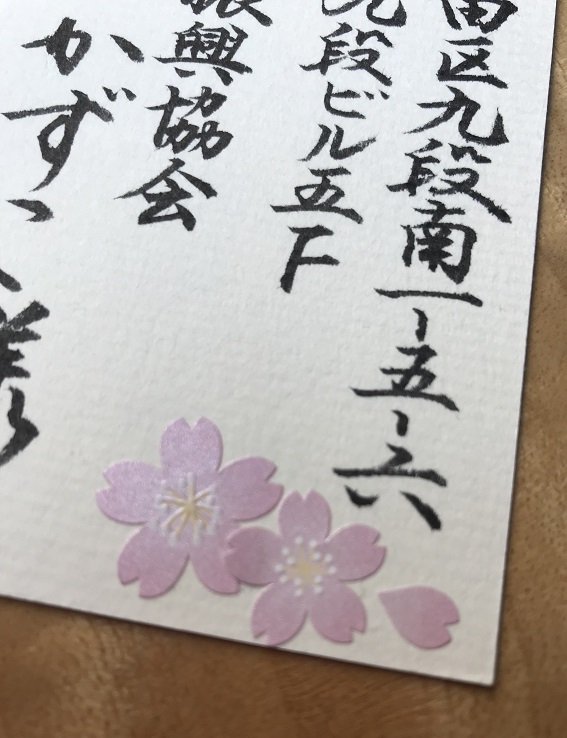 田区九段南一-五-六
九段ビル五F
振興協会
かずゝ
様